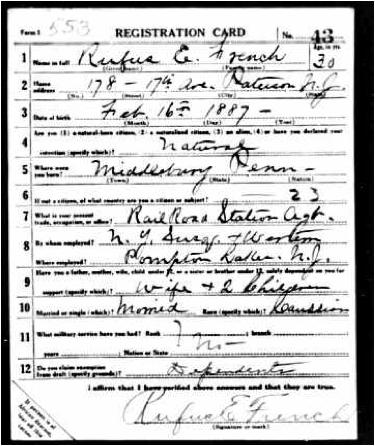 Form 1 553 REGISTRATION CARD No. 43
1 Name in full Rufus E. French Age, in yrs. 30
(Given name) (Family name)
2 Home address 178 - 17th Ave. Paterson N.J.
(No.) (Street) (City) (State)
3 Date of birth Feb. 16th 1887 -
(Month) (Day) (Year)
4 Are you (1) a natural-born citizen, (2) a naturalized citizen, (3) an alien, (4) or have you declared your
intention (specify which)? Natural
5 Where were you born? Middleburg Penn
(Town) (State) (Nation)
6 If not a citizen, of what country are you a citizen or subject? 23
7 What is your present trade, occupation, or office? Rail Road Station Agt.
8 By whom employed? N. Y. Susq. & Western
Where employed? Pompton Lakes. N.J.
9 Have you a father, mother, wife, child under 12, or a sister or brother under 12, solely dependent on you for
support (specify which)? Wife & 2 Children
10 Married or single (which)? Married Race (specify which)? Caucasian
11 What military service have you had? Rank ; branch
years Nation or State No
12 Do you claim exemption from draft (specify grounds)? Dependents
I affirm that I have verified above answers and that they are true.
Rufus E French
(Signature or mark)
If person is of African descent, tear off this corner.